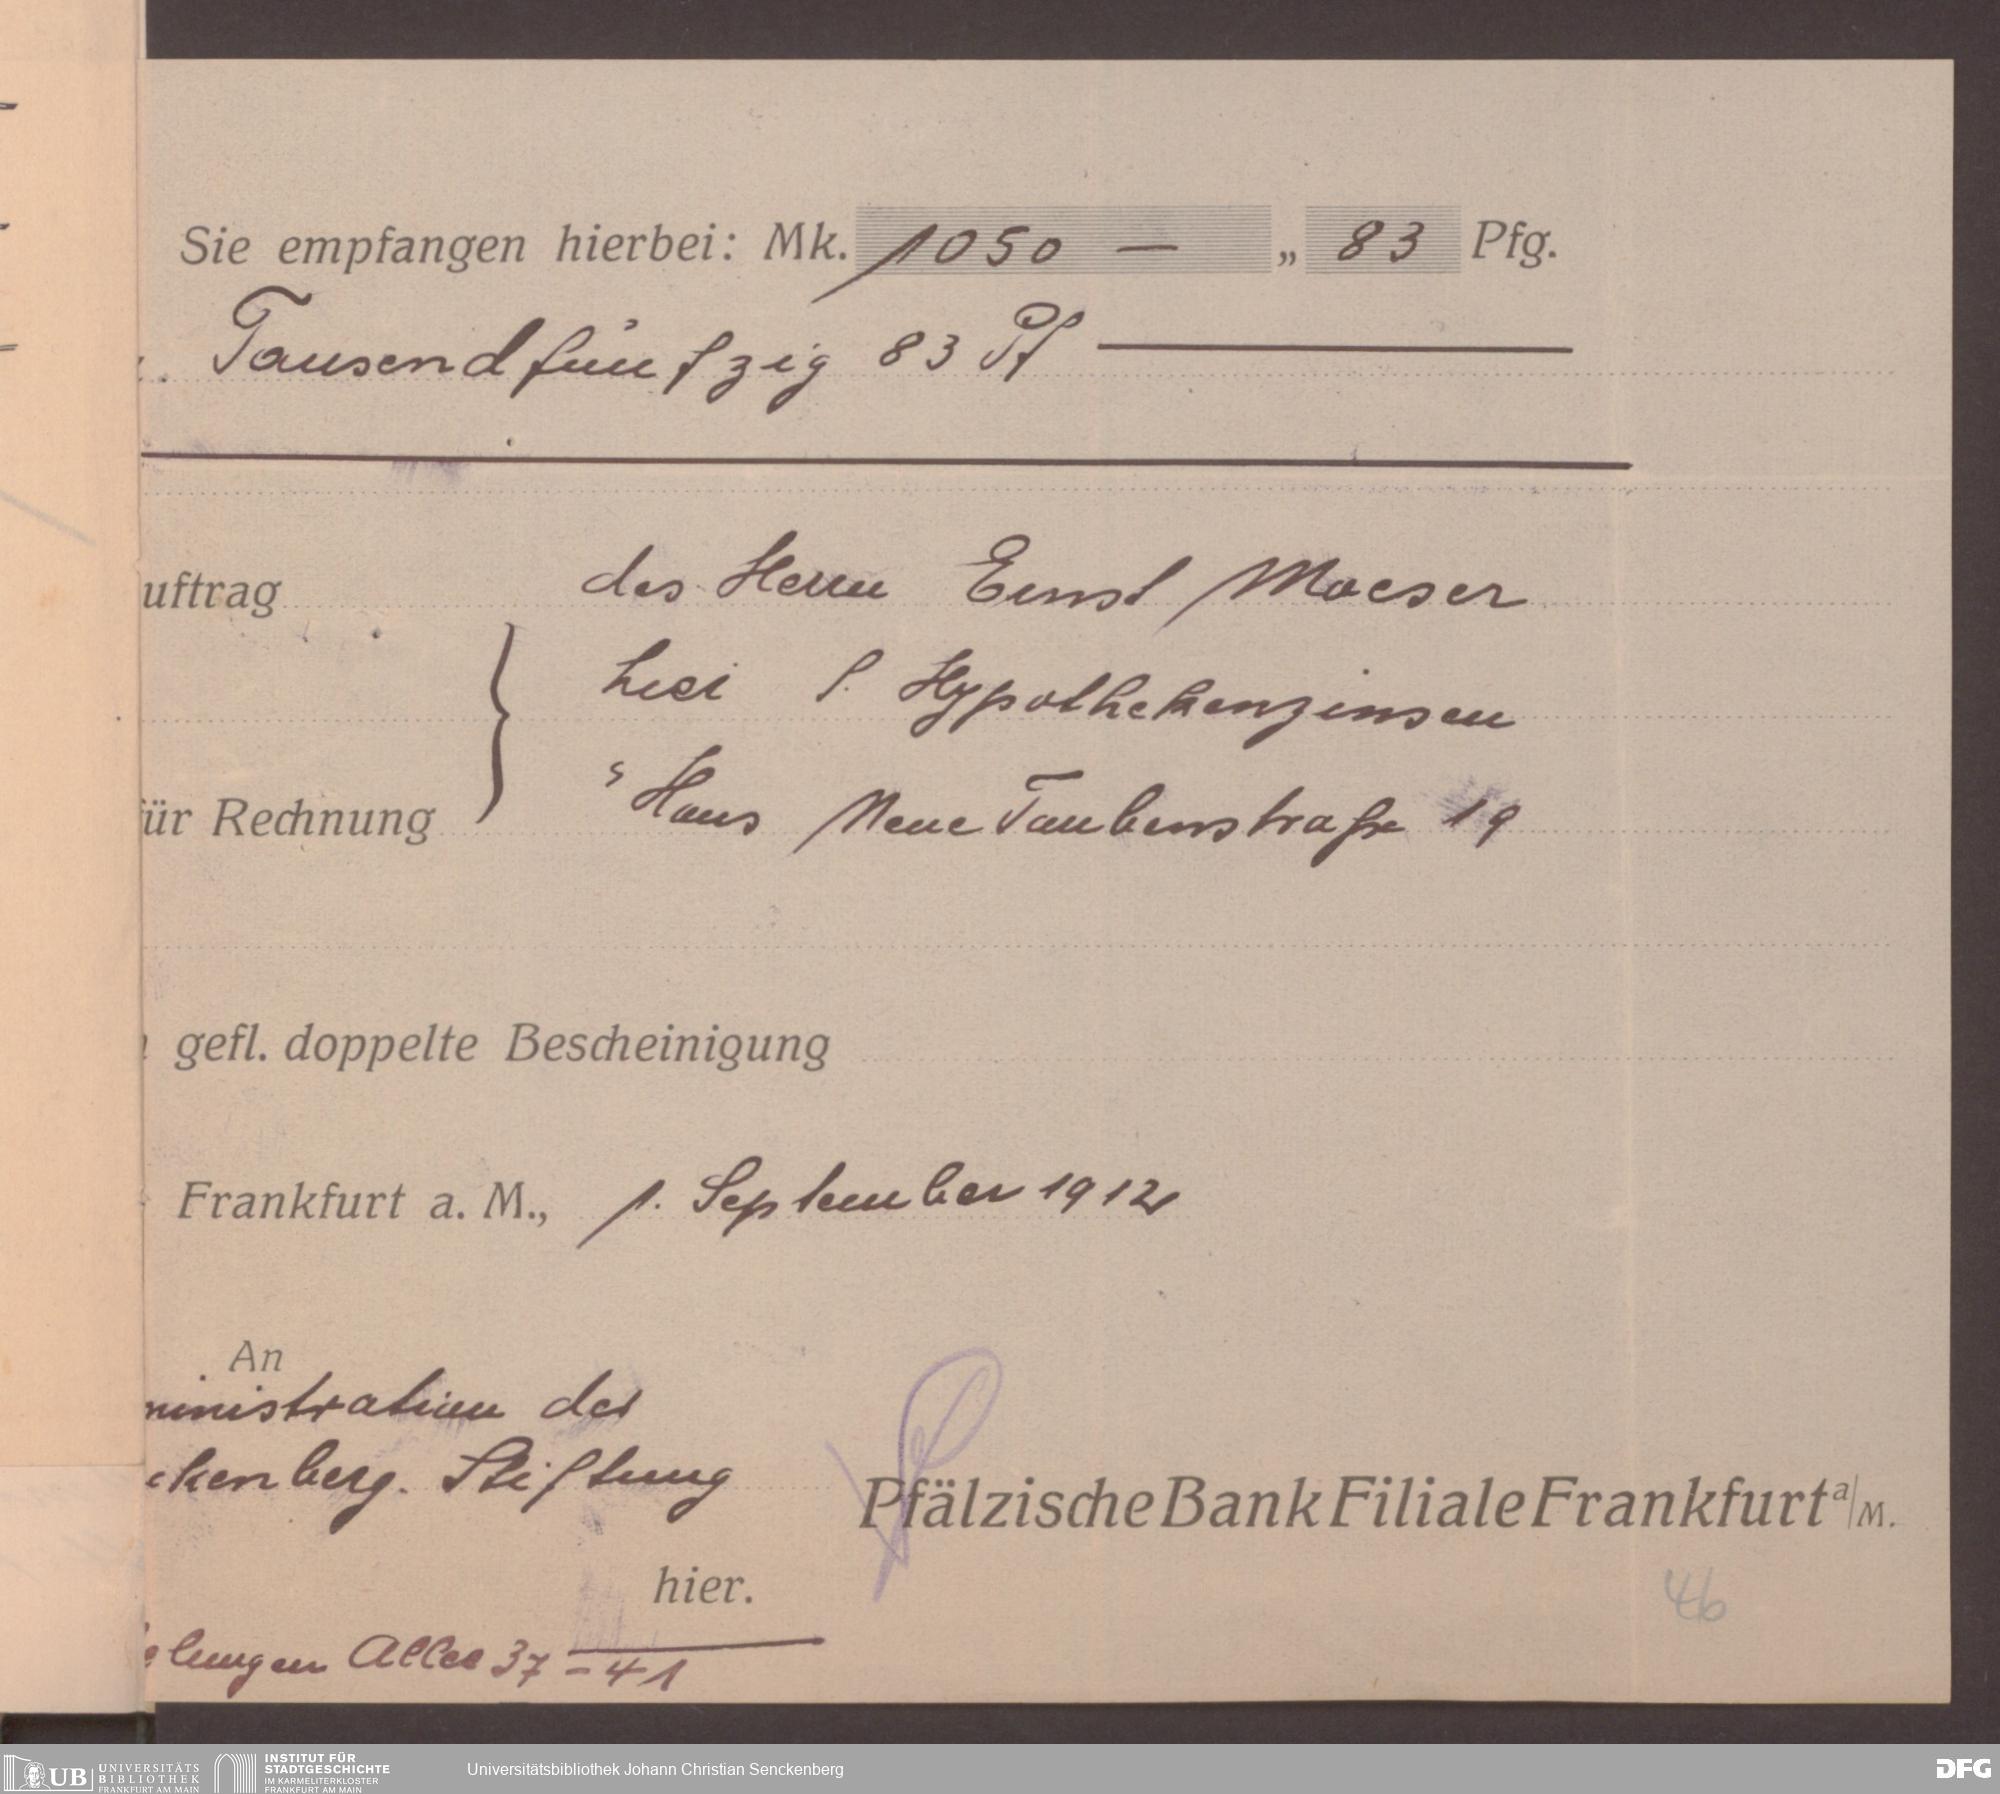 Sie empfangen hierbei: Mk. 1050 — „ 83 Pfg.
Tausendfünfzig 83 Pf
uftrag des Herrn Ernst Moeser
hier f. Hypothekenzinsen
für Rechnung Haus Neue Taubenstraße 19
gefl. doppelte Bescheinigung
Frankfurt a. M., 1. September 1912
An
ministration der
ckenberg. Stiftung
Pfälzische Bank Filiale Frankfurt a/M.
hier.
46
lungen Allee 37-41
UB UNIVERSITÄTS BIBLIOTHEK FRANKFURT AM MAIN
INSTITUT FÜR STADTGESCHICHTE IM KARMELITERKLOSTER FRANKFURT AM MAIN
Universitätsbibliothek Johann Christian Senckenberg
DFG